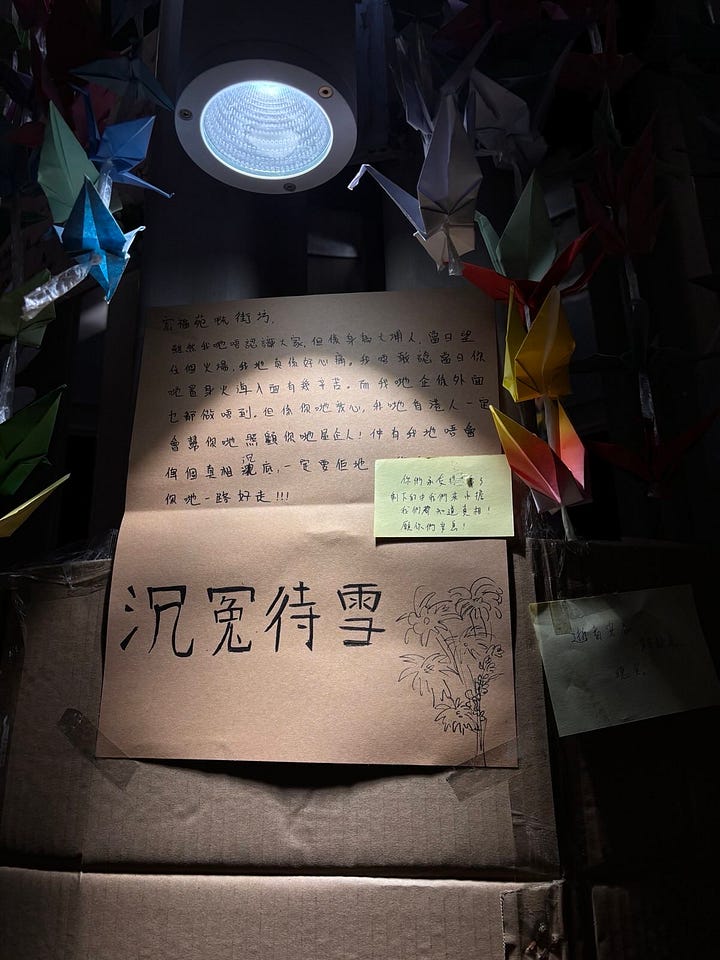 宏福苑嘅街坊,
雖然我哋唔認識大家,但係身為大埔人,當日望
住個火場,我哋真係好心痛。我唔敢諗當日你
哋置身火海入面有幾辛苦。而我哋企係外面
乜都做唔到。但係你哋放心,我哋香港人一定
會幫你哋照顧你哋屋企人!仲有我地唔會
俾個真相沉底,一定要佢地
你哋一路好走!!!
你們永
剩下的由我們來承擔
我們都知道真相!
願你們安息!
沉冤待雪